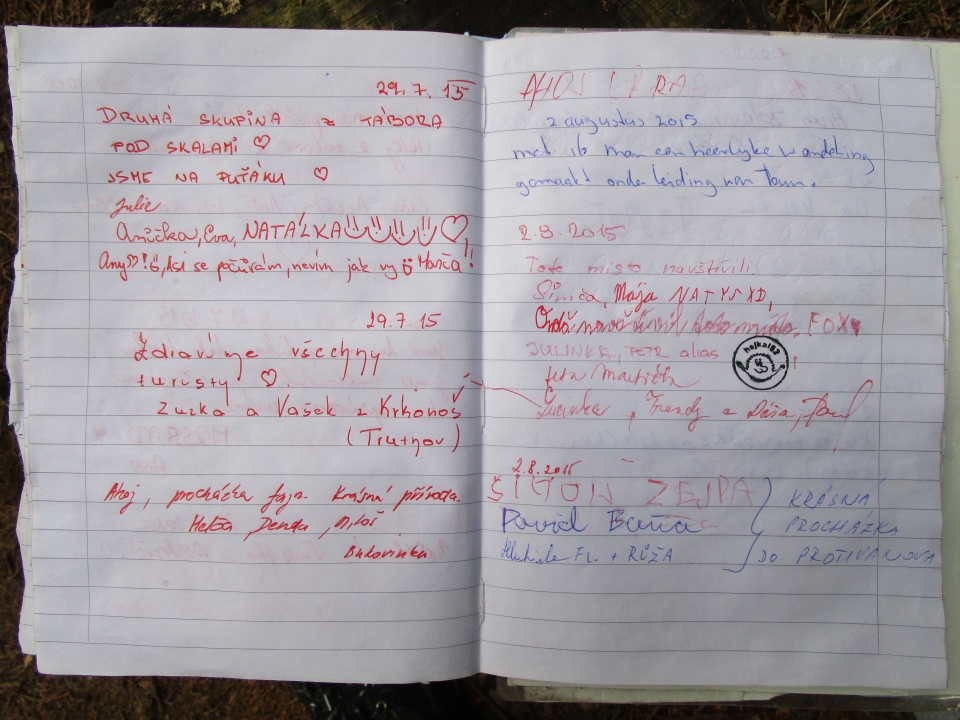 29.7.15
DRUHÁ SKUPINA z TÁBORA
POD SKALAMI ♡
JSME NA PUŤÁKU ♡
Julie
Anička, Eva, NATÁLKA
Any, Asi se počůrám, nevím jak vy Hanča!
29.7.15
Zdravíme všechny
turisty ♡.
Zuzka a Vašek z Krkonoš
(Trutnov)
Ahoj, procházka fajn. Krásná příroda.
Denda, Miloš
Bukovinka
AHOJ
2 augustus 2015
met ib man een heerlijke wandeling
gemaakt onder leiding van
2.8.2015
Toto místo navštívili.
Simča, Mája NATYS XD,
FOX
JULINKA, PETR alias
hejkal82
Jeza Martička
Lucinka, Trendy a Dáša,
2.8.2015
ŠIMON ZEJDA
David Bana
FL. + RŮŽA
KRÁSNÁ
PROCHÁZKA
DO PROTIVANOVA